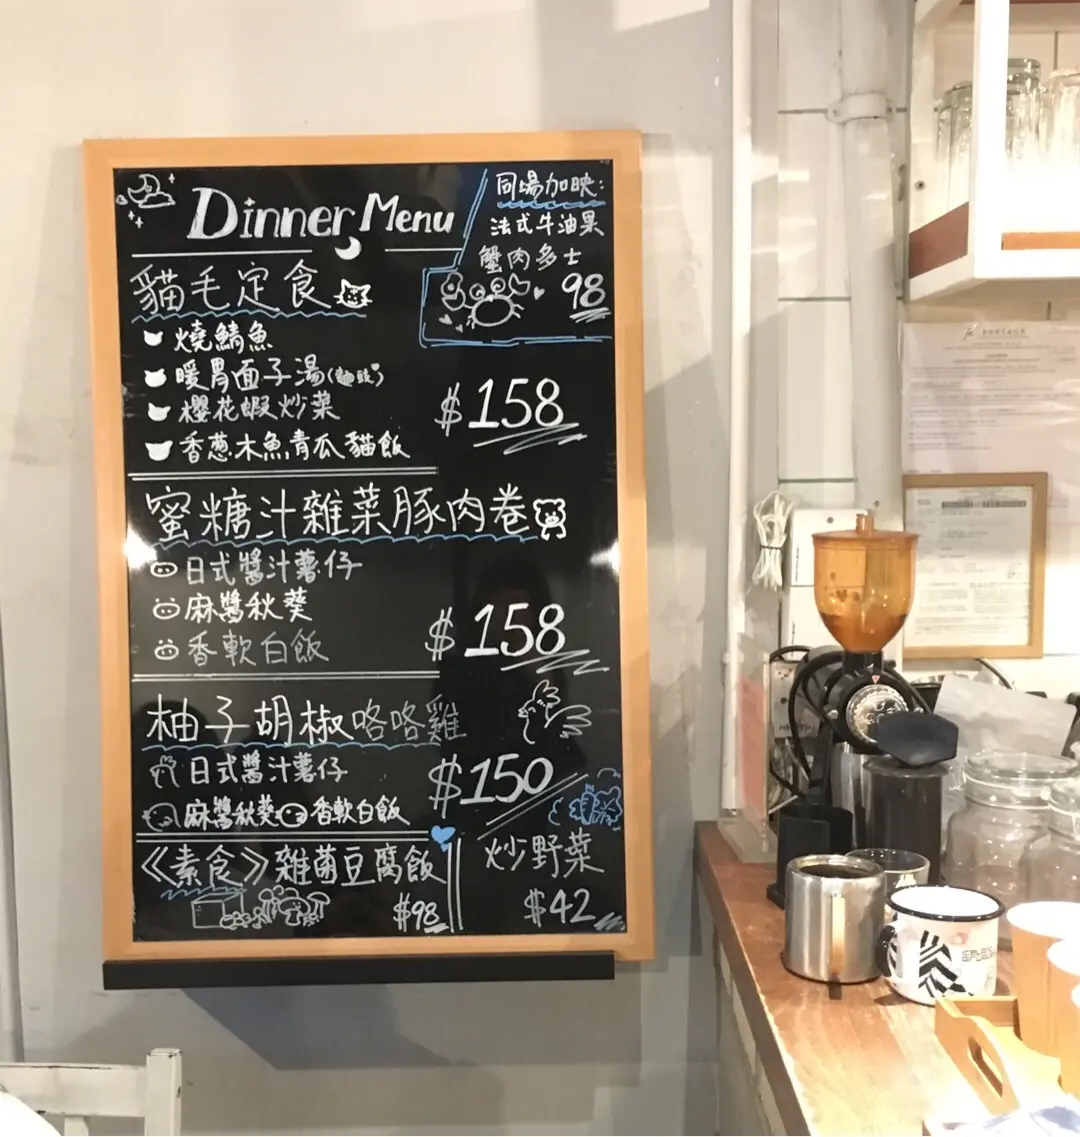 Dinner Menu
同場加映:
法式牛油果
蟹肉多士
98
貓毛定食
燒鯖魚
暖胃面子湯
櫻花蝦炒菜
香蔥木魚青瓜貓飯
$158
蜜糖汁雜菜豚肉卷
日式醬汁薯仔
麻醬秋葵
香軟白飯
$158
柚子胡椒咯咯雞
日式醬汁薯仔
麻醬秋葵 香軟白飯
$150
《素食》雜菌豆腐飯
$98
炒野菜
$42